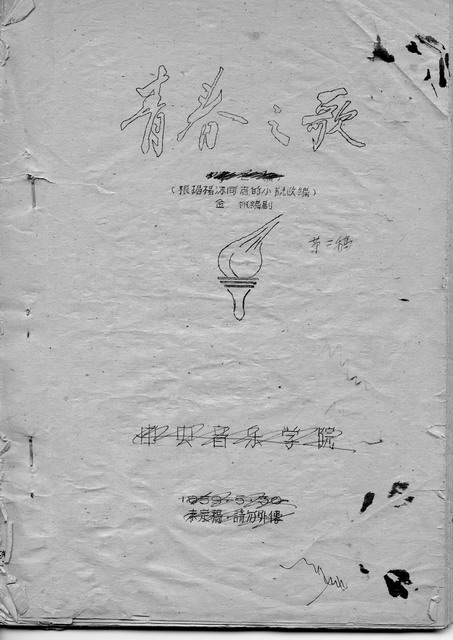 青春之歌
(根据杨沫同志的小说改编)
金 帆编剧
第二稿
音乐学院
1959.5.30
未定稿·請勿外傳